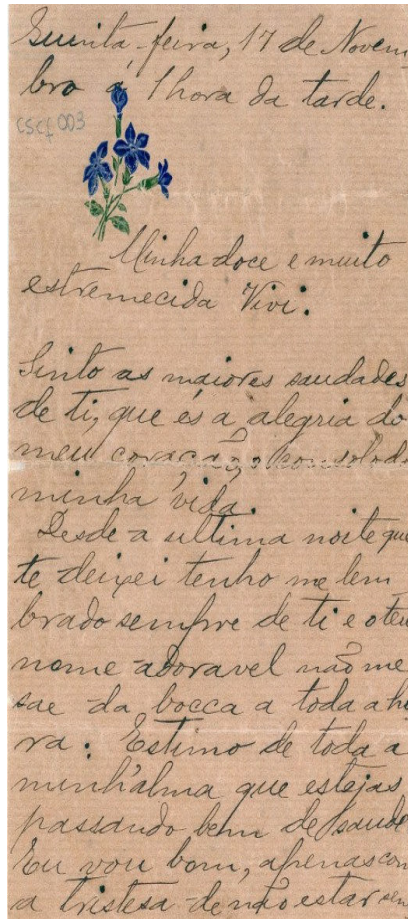 Quinta-feira, 17 de Novem
bro á 1 hora da tarde.
cscf 003
Minha doce e muito
estremecida Vivi.
Sinto as maiores saudades
de ti, que és a alegria do
meu coração, o consolo da
minha vida.
Desde a ultima noite que
te deixei tenho me lem
brado sempre de ti e o teu
nome adoravel não me
sae da bocca a toda a ho
ra. Estimo de toda a
minh'alma que estejas
passando bem de saude
Eu vou bom, apenas com
a tristesa de não estar sem